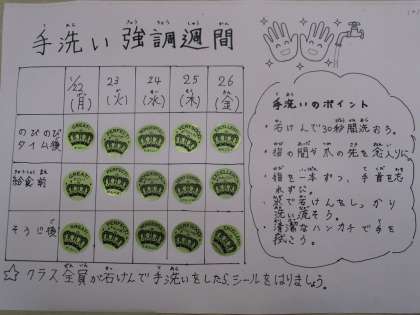 手洗い強調週間
1/22 23 24 25 26
(月) (火) (水) (木) (金)
のびのび
タイム後
給食前
そうじ後
手洗いのポイント
・石けんで30秒間洗おう。
・指の間や爪の先を念入りに
・指を一本ずつ、手首も忘
れずに。
石けんをしっかり
洗い流そう。
・清潔なハンカチで手を
拭こう。
☆クラス全員が石けんで手洗いをしたら、シールをはりましょう。